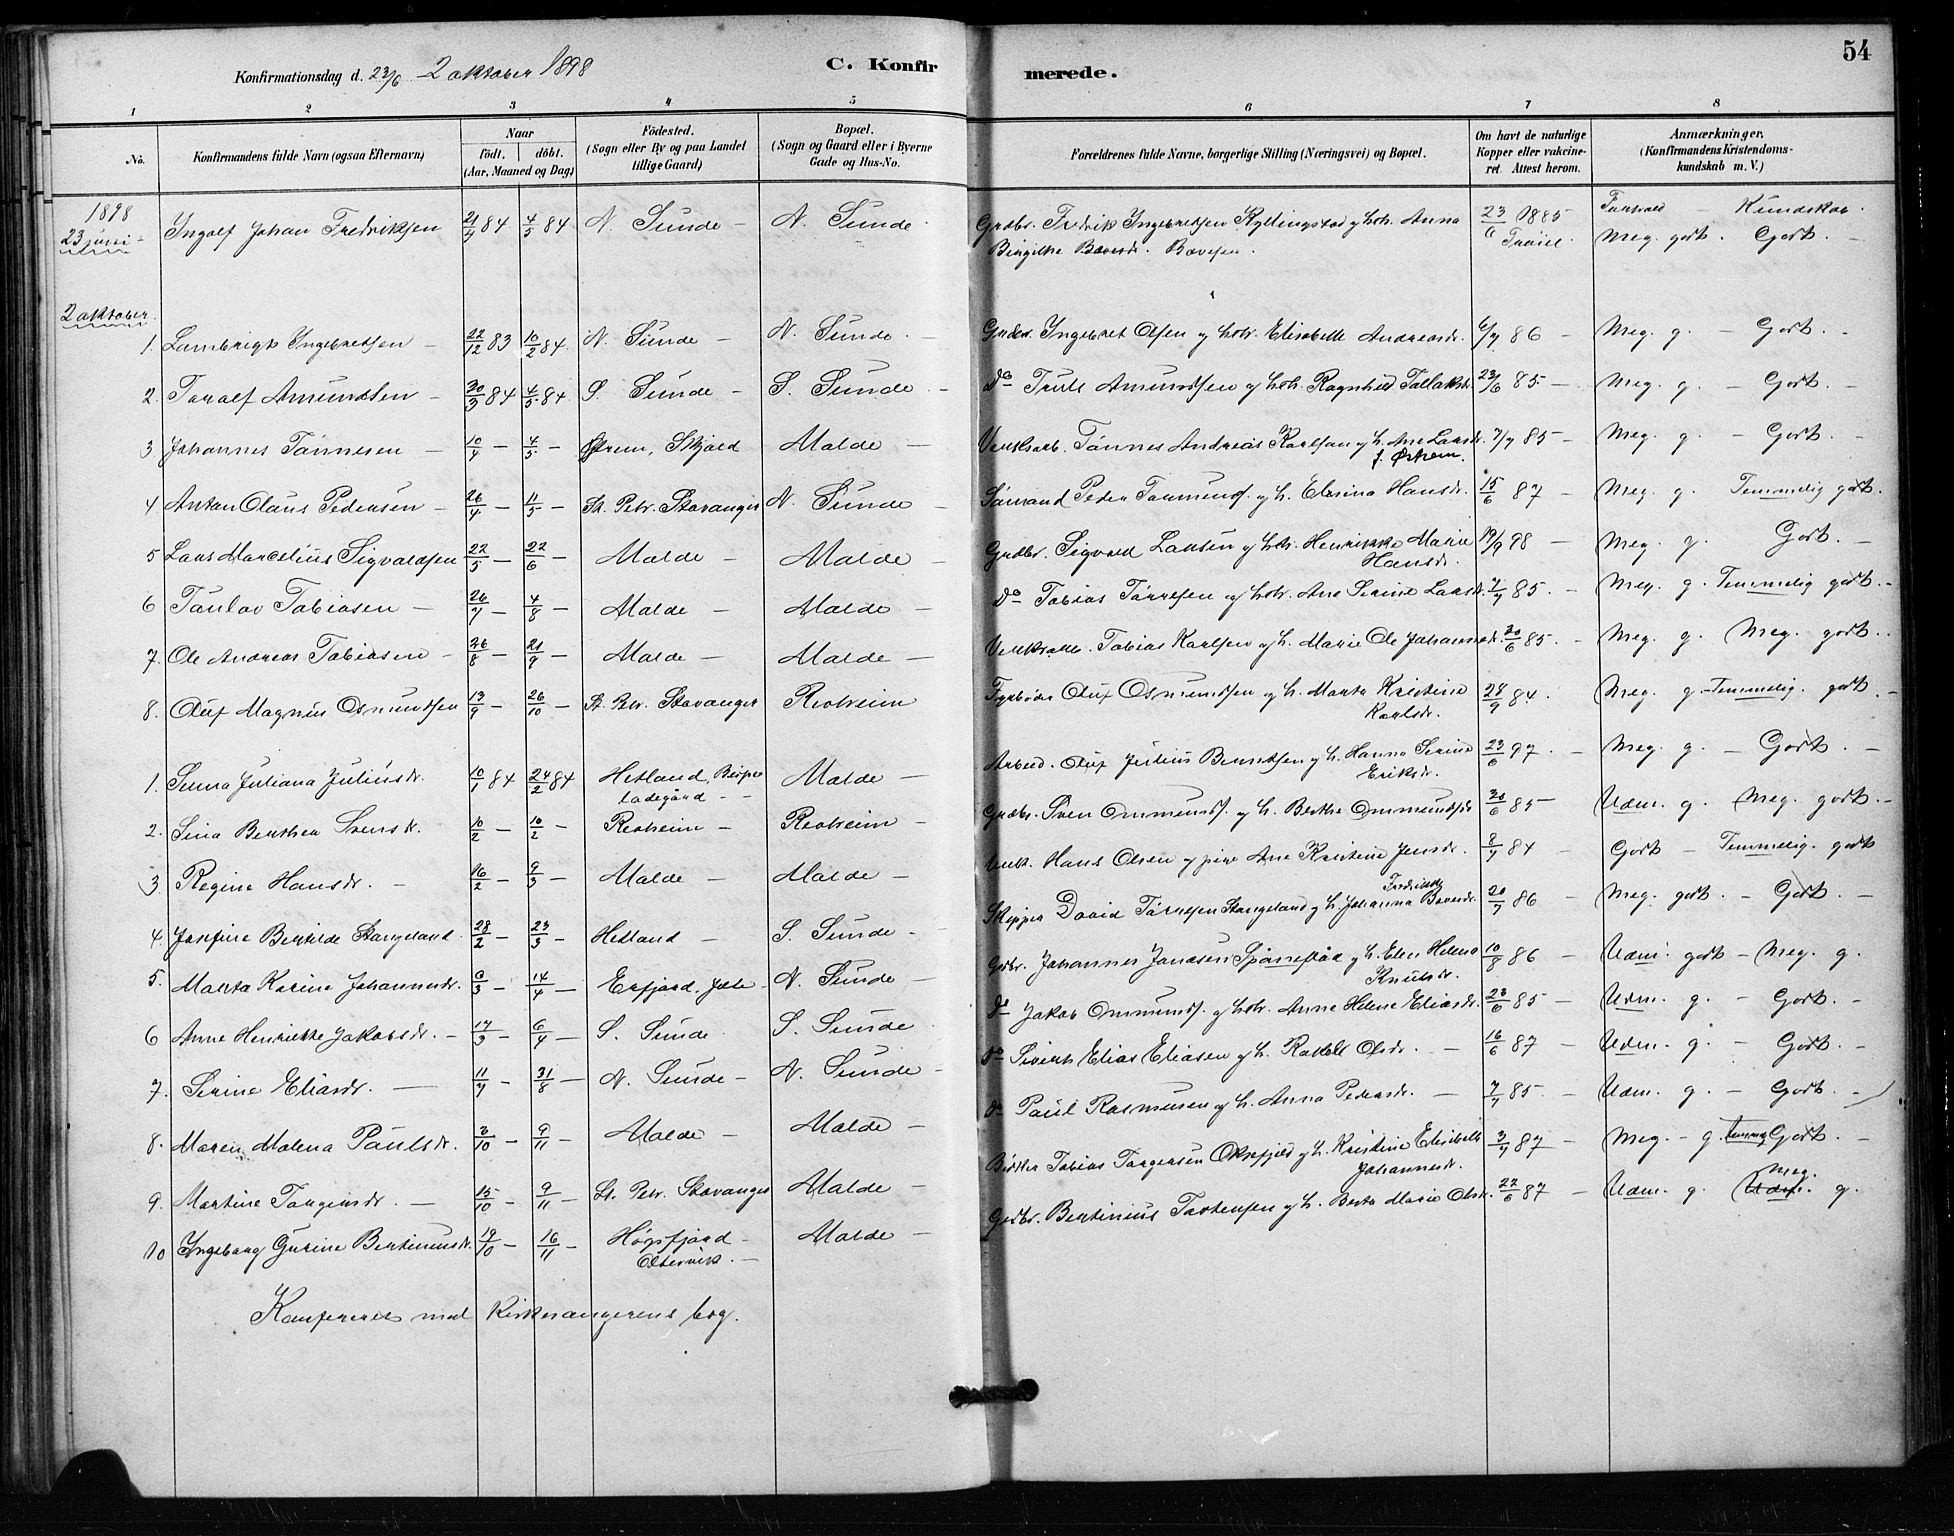 54
Konfirmationsdag d. 23/6 2 oktober 1898
C. Konfirmerede.
1 2 3 4 5 6 7 8
No. Konfirmandens fulde Navn (ogsaa Efternavn) Naar födt. döbt. (Aar, Maaned og Dag) Födested. (Sogn eller By og paa Landet tillige Gaard) Bopæl. (Sogn og Gaard eller i Byerne Gade og Hus-No. Forældrenes fulde Navne, borgerlige Stilling (Næringsvei) og Bopæl. Om havt de naturlige Kopper eller vakcineret Attest herom. Anmærkninger. (Konfirmandens Kristendomskundskab m. V.)
Forhold - Kundskab.
1898
23 juni Ingolf Johan Fredriksen 21/4 84 4/5 84 N. Sunde - N. Sunde Grdbr. Fredrik Ingebretsen Kyllingstad og hstr. Anna 23/6 1885 Meg. godt. Godt. -
2 oktober.
1. Lambrigt Ingebretsen - 22/12 83 10/2 84 N. Sunde - N. Sunde - Grdbr. Ingebret Olsen og hstr. Elisabeth Andreasdr. 6/7 86 - Meg. g. - Godt. -
2. Toralf Amundsen - 30/3 84 4/5 84 S. Sunde - S. Sunde - Do Truls Amundsen og hstr. Ragnhild Tollaksdr. 23/6 85 - Meg. g. - Godt. -
3 Johannes Tönnesen - 10/4 - 4/5 - Skjold Malde - Tönnes Andreas Karlsen og h. Ane Larsdr. 7/7 85 - Meg. g. - Godt. -
f. Östrem.
4 Anton Olaus Pedersen - 26/4 - 11/5 - St. Petr. Stavanger N. Sunde - Sömand Peder Tommesf. og h. Elesina Hansdr. 15/6 87 - Meg. g. Temmelig godt.
5 Lars Marcelius Sigvaldsen 22/5 - 22/6 - Malde - Malde - Grdbr. Sigvald Larsen og hstr. Henrikke Marie 19/9 98 - Meg. g. Godt. -
Hansdr.
6 Taulov Tobiasen - 26/7 - 4/8 - Malde - Malde - Do Tobias Törresen og hstr. Ane Serine Larsdr. 7/7 85. - Meg. g. Temmelig godt. -
7. Ole Andreas Tobiasen - 26/8 - 21/9 - Malde - Malde - Tobias Karlsen og h. Marie Ole Johannesdr. 30/6 85. - Meg. g. Meg. godt.
8. Oluf Magnus Osmundsen 13/9 - 26/10 - St. Petr. Stavanger Revheim Fyrböder Oluf Osmundsen og h. Marta Kristine 28/9 84. - Meg. g. - Temmelig. godt. -
Karlsdr.
1. Senna Juliana Juliusdr. 10/1 84 24/2 84 Hetland, Malde - Arbeid. Oluf Julius Berntsen og h. Hanna Serine 23/6 97. - Meg. g. - Godt. -
Ladegård - - Eriksdr.
2. Sina Berthea Svensdr. 10/2 - 10/2 - Revheim - Revheim - Grdbr. Sven Ommundsf. og h. Berthe Ommundsdr. 30/6 85 - Udm. g. Meg. godt. -
3. Regine Hansdr. - 16/2 - 9/3 - Malde - Malde - Hans Olsen og pige Ane Kristine Jensdr. 8/7 84 Godt - Temmelig. godt
4 Josefine Bertilde Stangeland. 28/2 - 23/3 - Hetland - S. Sunde - Skipper David Törresen Stangeland og h. Johanna 20/7 86 - Meg. godt. - Godt. -
5. Marta Karine Johannesdr. 6/3 - 14/4 - Erfjord, N. Sunde - Grdbr. Johannes Jonasen og h. Elen Helena 10/8 86 - Udm. godt - Meg. g.
Knutsdr.
6 Anne Henrikke Jakobsdr. - 17/3 - 6/4 - S. Sunde S. Sunde Do Jakob Ommundsf. og hstr. Anne Helene Eliasdr. 23/6 85 - Udm. g. - Godt. -
7. Serine Eliasdr. - 11/7 - 31/8 - N. Sunde - N. Sunde - Do Sivert Elias Eliasen og h. Olsdr. - 16/6 87 - Udm. g. - Godt. -
8. Maren Malena Paulsdr. 3/10 - 9/11 - Malde - Malde - Do Paul Rasmusen og h. Anna Pedersdr. - 7/7 85. - Udm. g. - Godt. -
9. Martine Torgersdr. - 15/10 - 9/11 - St. Petr. Stavanger Malde - Tobias Torgersen Oksefjeld og h. Kristine Elisabeth 3/7 87 - Meg. - g. Godt. -
Johannesdr.
10 Ingeborg Gurine Bertinusdr. 19/10 - 16/11 - Høgsfjord - Malde - Grdbr. Bertinius Torstensen og h. Berta Marie Olsdr. 22/6 87 - Udm. g. Meg. g.
Oltesvik. -
Konfereret med Kirkesangerens bog.